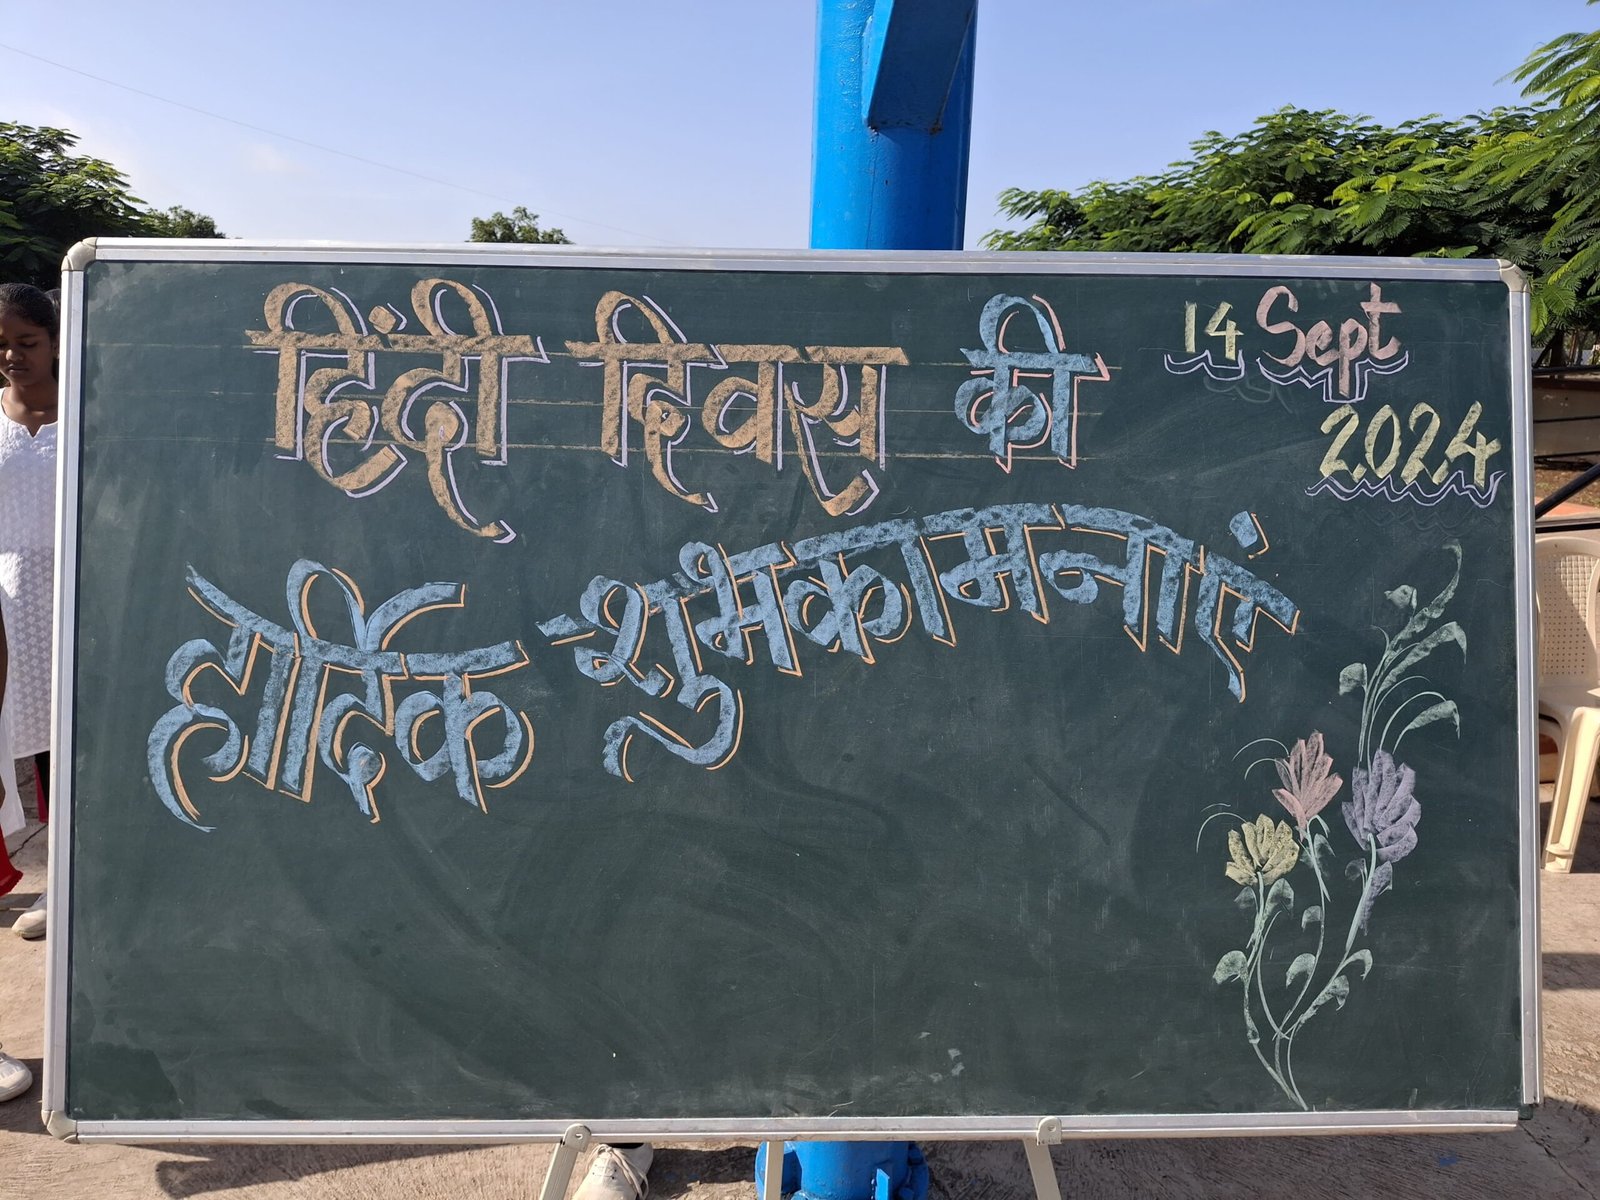 हिंदी दिवस की
14 Sept
2024
हार्दिक शुभकामनाएं